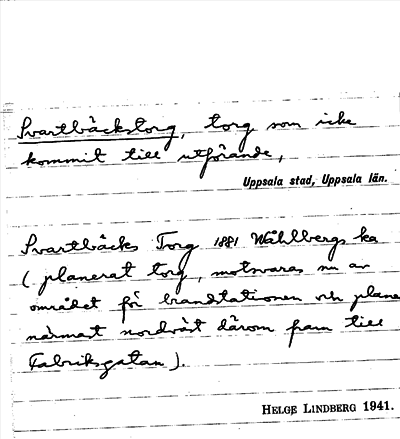 Svartbäckstorg, torg som icke
kommit till utförande,
Uppsala stad, Uppsala län.
Svartbäcks Torg 1881 Wåhlbergs ka
(planerat torg, motsvaras nu av
området för brandstationen och plane
närmast nordväst därom fram till
Fabriksgatan).
HELGE LINDBERG 1941.